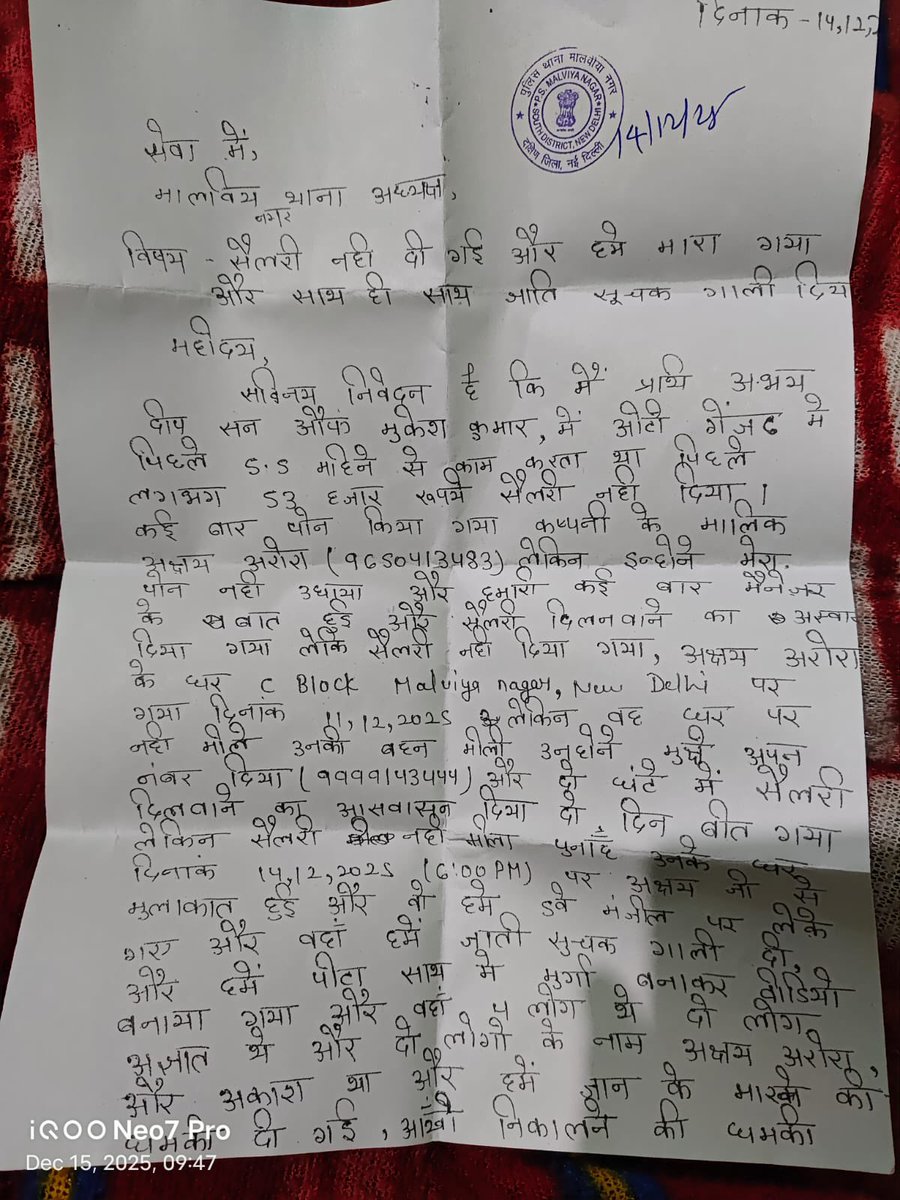 दिनाक - 14,12,2
पुलिस थाना मालवीया नगर
P.S. MALVIYA NAGAR
SOUTH DISTRICT, NEW DELHI
दक्षिण जिला, नई दिल्ली
14/12/25
सेवा में,
मालविय थाना अध्यक्ष,
नगर
विषय - सैलरी नही दी गई और हमे मारा गया
और साथ ही साथ जाति सूचक गाली दिय
महोदय,
सविनय निवेदन है कि मैं प्रार्थि अभय
दीप सन ऑफ मुकेश कुमार, में ओटो गेंजट मे
पिछले 5.5 महिने से काम करता था पिछले
लगभग 53 हजार रूपये सैलरी नही दिया ।
कई बार फोन किया गया कम्पनी के मालिक
अक्षय अरोरा (9650413483) लेकिन इन्होने मेरा
फोन नही उथाया और हमारी कई बार मैनेजर
के बात हुई और सैलरी दिलनवाने का अस्वा
दिया गया लेकि सैलरी नही दिया गया, अक्षय अरोरा
के घर C Block Malviya nagar, New Delhi पर
गया दिनांक 11,12,2025 लेकिन वह घर पर
नही मीले उनकी बहन मीली उनहोने मुझे अपन
नंबर दिया (9999143444) और दो घंटे में सैलरी
दिलवाने का आसवासन दिया दो दिन बीत गया
लेकिन सैलरी नही मीला पुनाः उनके घर
दिनांक 14,12,2025 (6:00 PM) पर अक्षय जी से
मुलाकात हुई और वो हमे 5वे मंजील पर लेके
गए और वहां हमें जाती सुचक गाली दी
और हमें पीटा साथ मे मुर्गा बनाकर वीडियो
बनाया गया और वहां 4 लोग थे दो लोग
अज्ञात थे और दो लोगो के नाम अक्षय अरोरा,
और अकाश था और हमें जान के मारने की
धमकी दी गई, आंखो निकालने की धमकी
iQOO Neo7 Pro
Dec 15, 2025, 09:47